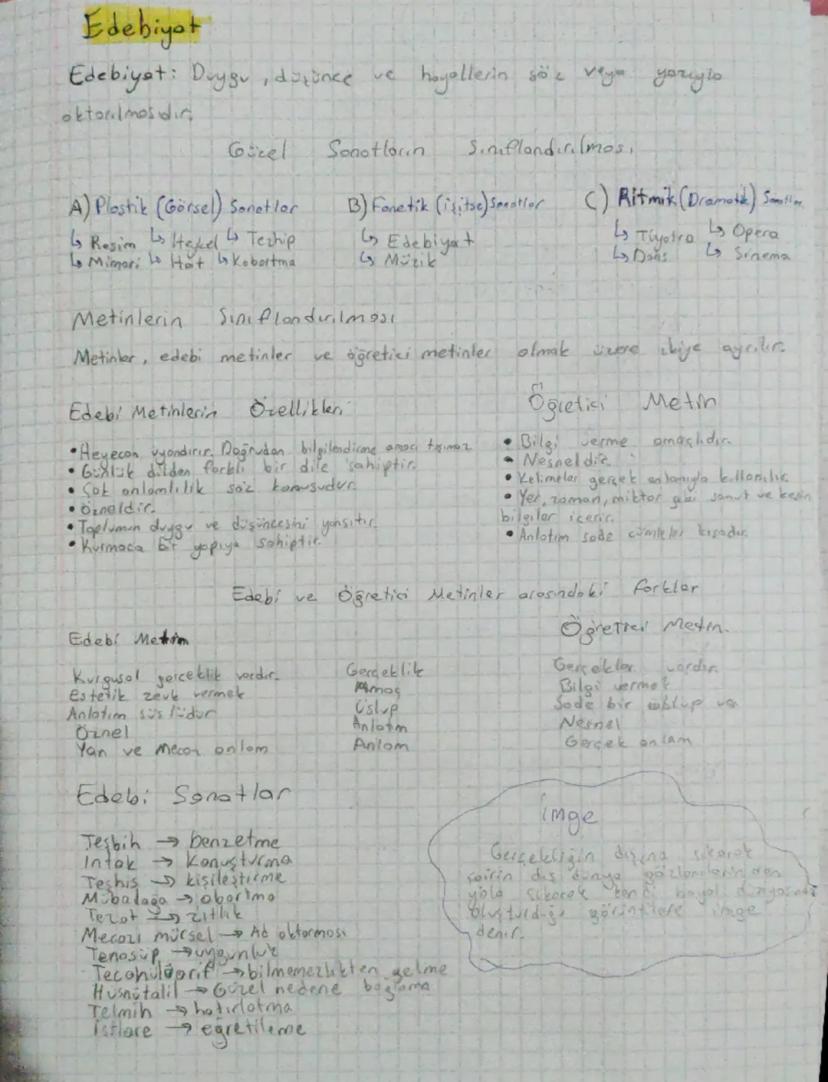 Edebiyat
Edebiyat: Duygu, düşünce ve hayallerin söz veya yazıyla
aktarılmasıdır.
Güzel Sanatların Sınıflandırılması
A) Plastik (Görsel) Sanatlar B) Fonetik (işitse) Sanatlar C) Ritmik (Dramatik) Sanatlar
↳ Resim ↳ Heykel ↳ Tezhip ↳ Edebiyat ↳ Tiyatro ↳ Opera
↳ Mimari ↳ Hat ↳ Kabartma ↳ Müzik ↳ Dans ↳ Sinema
Metinlerin Sınıflandırılması
Metinler, edebi metinler ve öğretici metinler olmak üzere ikiye ayrılır.
Edebi Metinlerin Özellikleri
• Heyecan uyandırır. Doğrudan bilgilendirme amacı taşımaz
• Günlük dilden farklı bir dile sahiptir.
• Çok anlamlılık söz konusudur.
• Özneldir.
• Toplumun duygu ve düşüncesini yansıtır.
• Kurmaca bir yapıya sahiptir.
Öğretici Metin
• Bilgi verme amaçlıdır.
• Nesneldir.
• Kelimeler gerçek anlamıyla kullanılır.
• Yer, zaman, miktar gibi somut ve kesin
bilgiler içerir.
• Anlatım sade cümleler kısadır.
Edebi ve Öğretici Metinler arasındaki farklar
Edebi Metin Öğretici Metin.
Kurgusal gerçeklik vardır. Gerçeklik Gerçekler vardır.
Estetik zevk vermek Amaç Bilgi vermek
Anlatım süslüdür Üslup Sade bir üslup var
Öznel Anlatım Nesnel
Yan ve Mecaz anlam Anlam Gerçek anlam
Edebi Sanatlar
Teşbih → benzetme
İntak → Konuşturma
Teşhis → kişileştirme
Mübalağa → abartma
Tezat → zıtlık
Mecazı mürsel → Ad aktarması
Tenasüp → uygunluk
Tecahülüarif → bilmemezlikten gelme
Hüsnütalil → Güzel nedene bağlama
Telmih → hatırlatma
İstiare → eğretileme
İmge
Gerçekliğin dışına çıkarak
şairin dış dünya gözlemlerinden
yola çıkarak kendi hayal dünyasında
oluşturduğu görüntülere imge
denir.